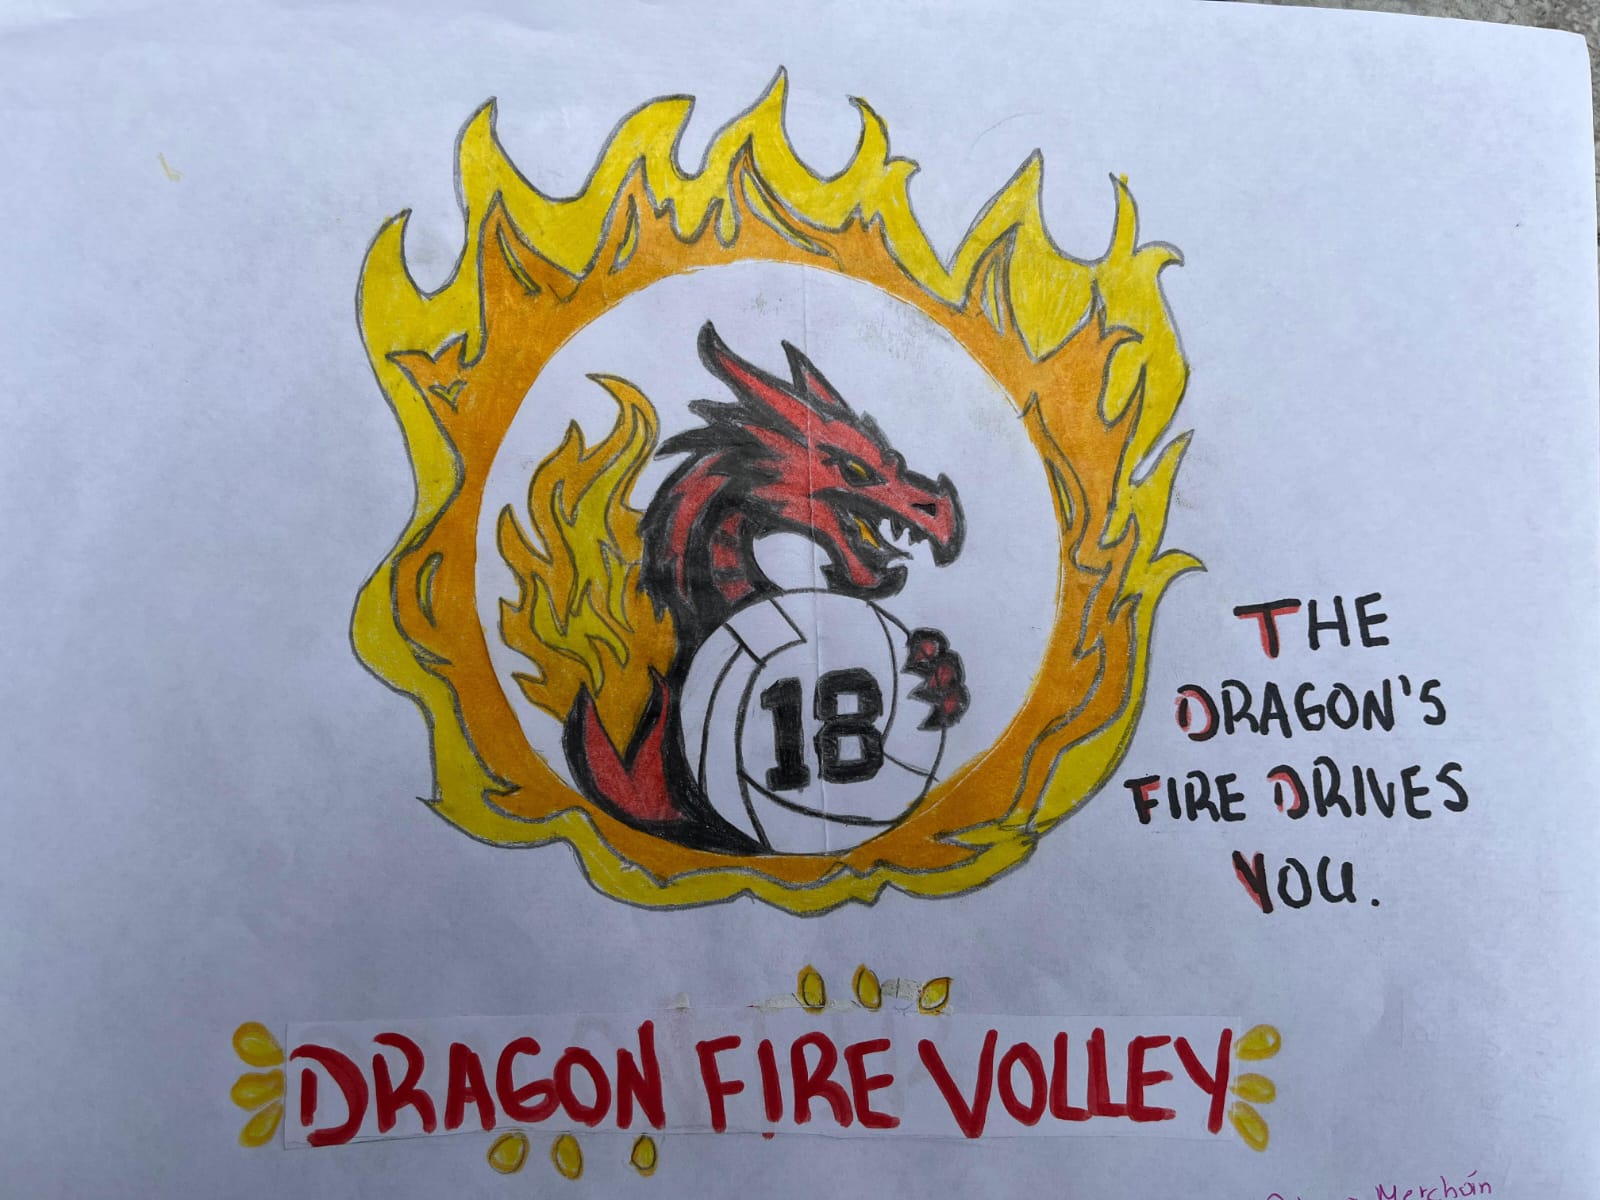 18
THE
DRAGON'S
FIRE DRIVES
YOU.
DRAGON FIRE VOLLEY
Merchán